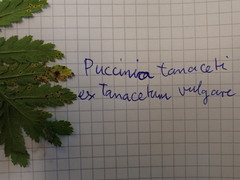 Puccinia tanaceti
ex Tanacetum vulgare